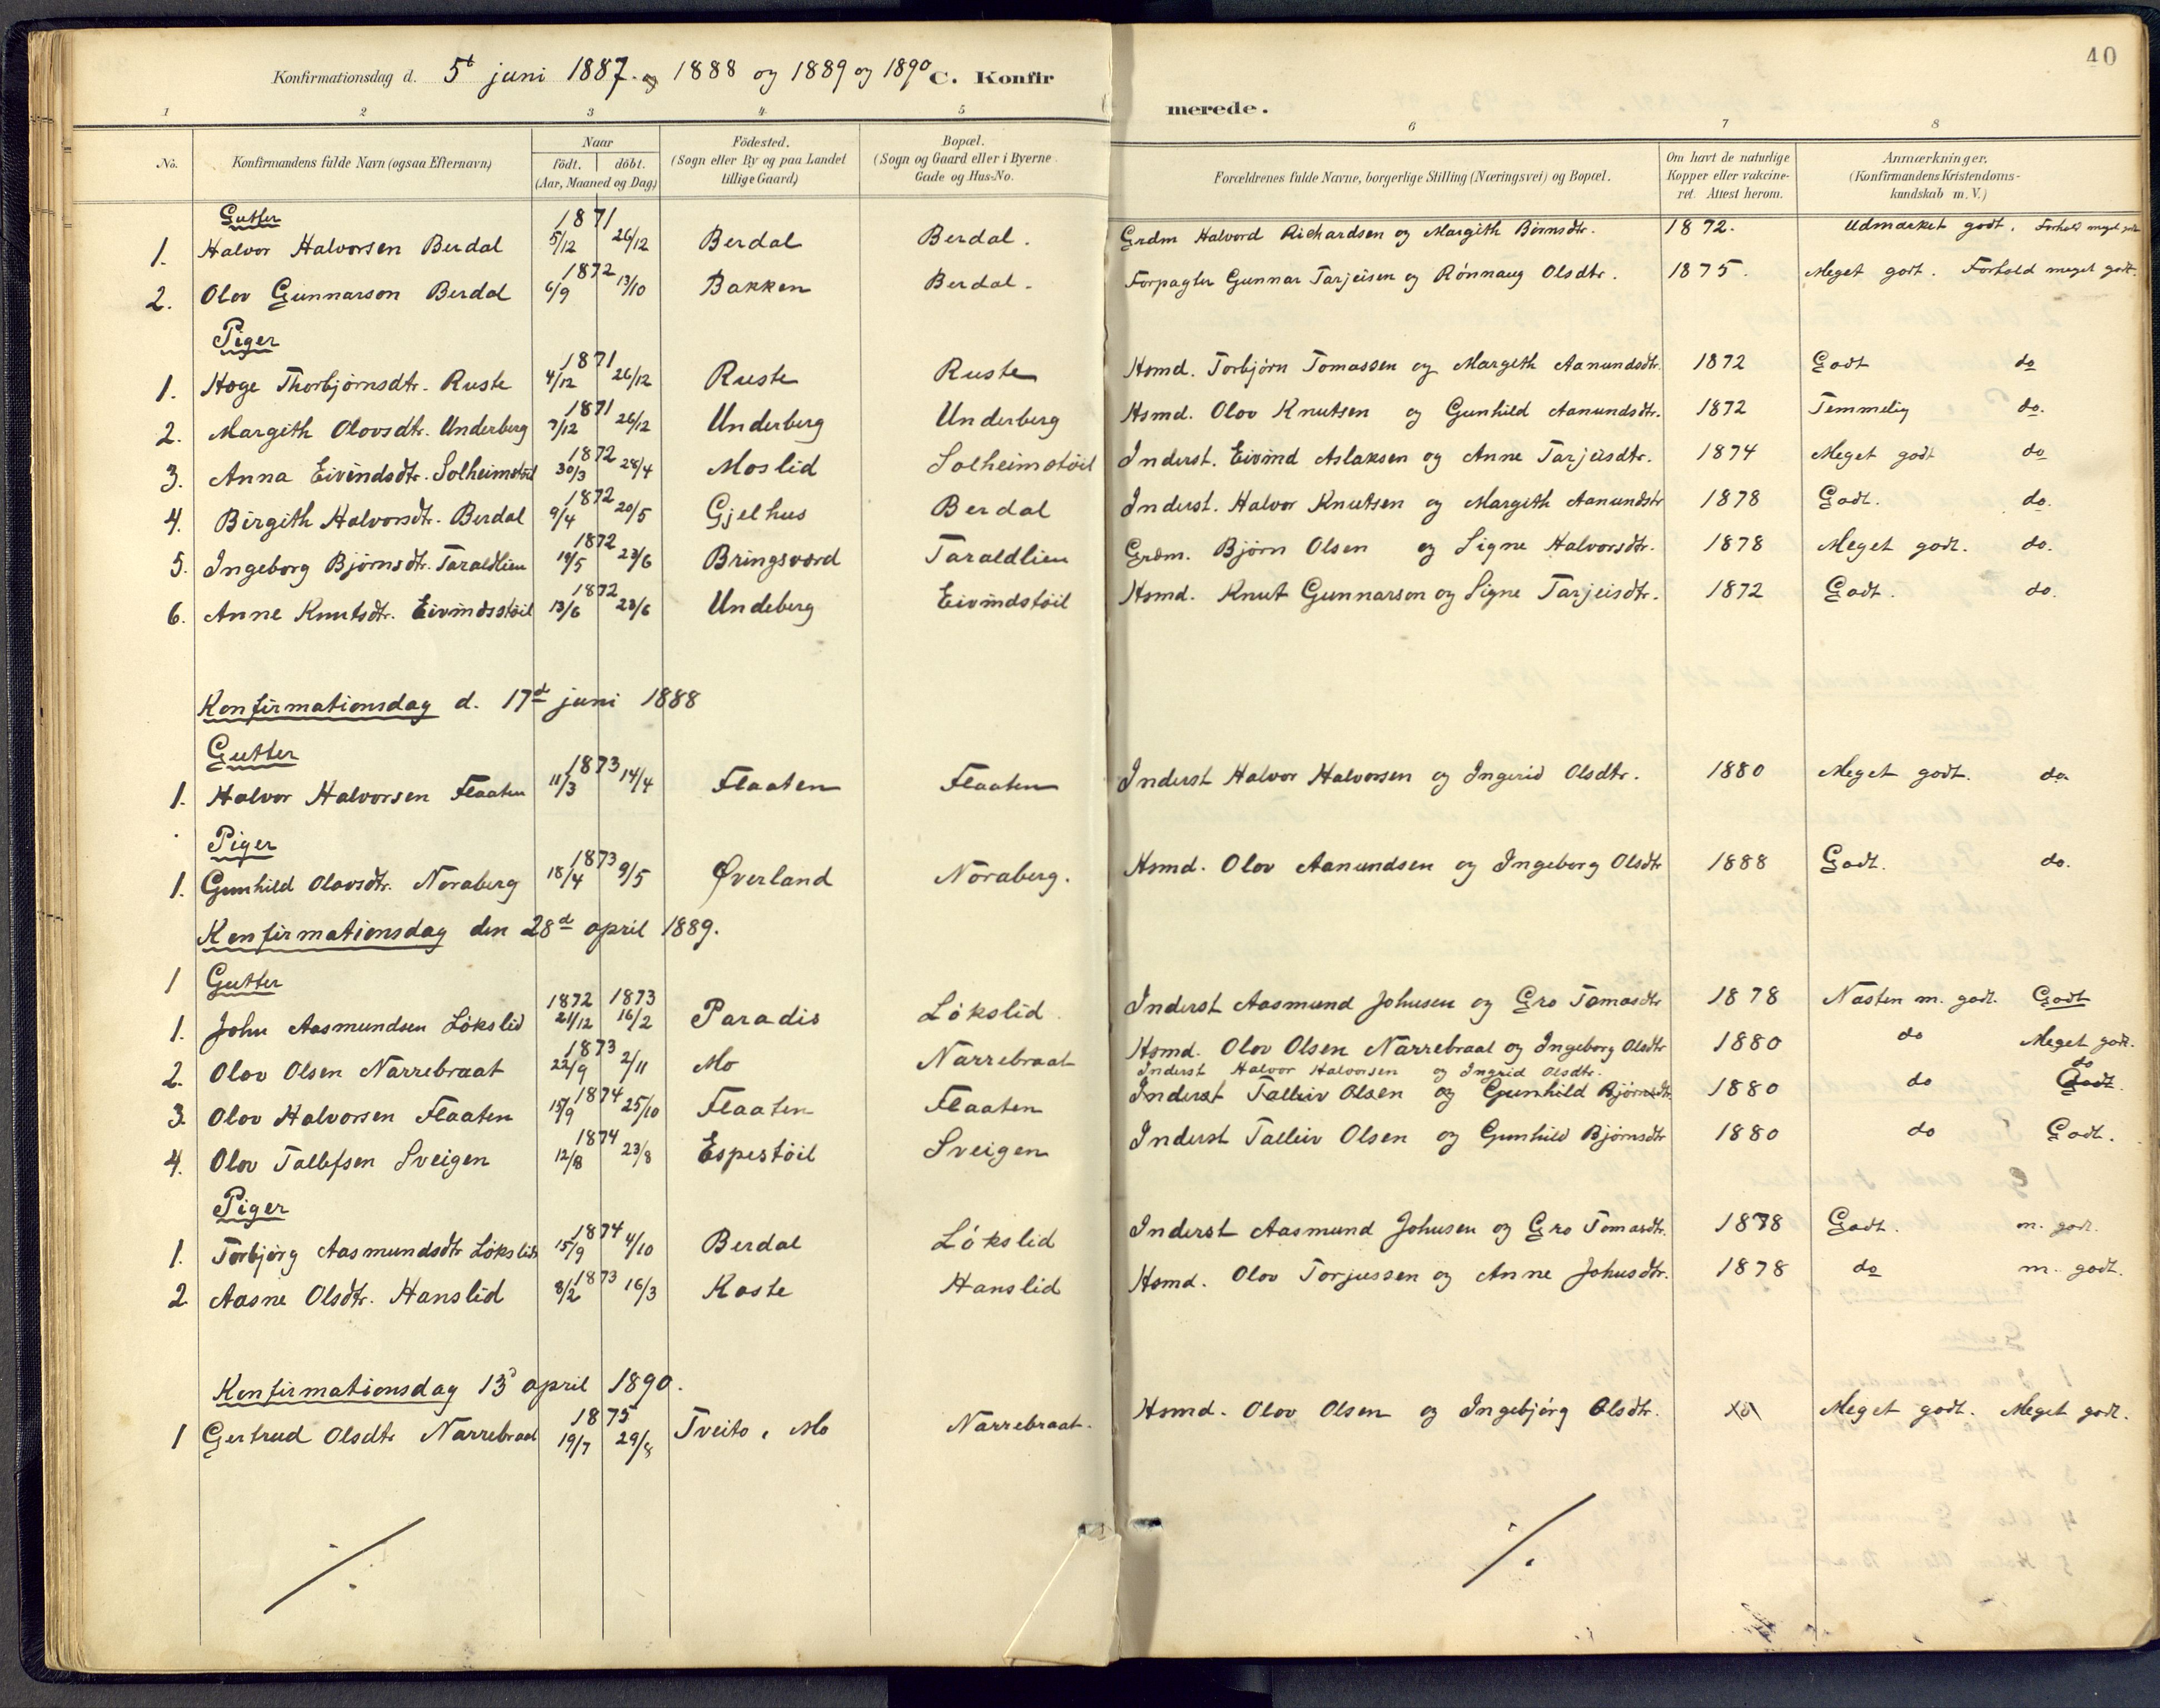 40
Konfirmationsdag d. 5t juni 1887. og 1888 og 1889 og 1890 C. Konfir
merede.
1 2 3 4 5 6 7 8
No. Konfirmandens fulde Navn (ogsaa Efternavn) Naar födt. döbt. (Aar, Maaned og Dag) Födested. (Sogn eller By og paa Landet tillige Gaard) Bopæl. (Sogn og Gaard eller i Byerne Gade og Hus-No. Forældrenes fulde Navne, borgerlige Stilling (Næringsvei) og Bopæl. Om havt de naturlige Kopper eller vakcineret. Attest herom. Anmærkninger. (Konfirmandens Kristendomskundskab m. V.)
Gutter
1. Halvor Halvorsen Berdal 1871 5/12 26/12 Berdal Berdal. Grdm Halvord Richardsen og Margith Börnsdtr. 1872. Udmærket godt. Forhold meget godt
2. Olov Gunnarson Berdal 1872 6/9 13/10 Bakken Berdal. Forpagter Gunnar Tarjeisen og Rönnaug Olsdtr. 1875. Meget godt. Forhold meget godt.
Piger
1. Hæge Thorbjörnsdtr. Ruste 1871 4/12 26/12 Ruste Ruste Hsmd. Torbjörn Tomassen og Margith Aanundsdtr. 1872 Godt do
2. Margith Olovsdtr. Underberg 1871 7/12 26/12 Underberg Underberg Hsmd. Olov Knutsen og Gunhild Aanundsdtr. 1872 Temmelig do.
3. Anna Eivindsdtr. Solheimstöil 1872 30/3 28/4 Moslid Solheimstöil Inderst. Eivind Aslaksen og Anne Tarjeisdtr. 1874 Meget godt do
4. Birgith Halvorsdtr. Berdal 1872 9/4 20/5 Gjelhus Berdal Inderst. Halvor Knutsen og Margith Aanundstr 1878 Godt. do.
5. Ingeborg Bjørnsdtr. Taraldlien 1872 19/5 23/6 Bringsværd Taraldlien Grdm. Bjørn Olsen og Signe Halvorsdtr. 1878 Meget godt. do.
6. Anne Knutsdtr. Eivindsstöil 1872 13/6 23/6 Undeberg Eivindstöil Hsmd. Knut Gunnarson og Signe Tarjeisdtr. 1872 Godt. do.
Konfirmationsdag d. 17d juni 1888
Gutter
1. Halvor Halvorsen Flaaten 1873 11/3 14/4 Flaaten Flaaten Inderst Halvor Halvorsen og Ingerid Olsdtr. 1880 Meget godt. do.
Piger
1. Gunhild Olovsdtr. Noraberg 1873 18/4 9/5 Øverland Noraberg. Hsmd. Olov Aanundsen og Ingeborg Olsdtr 1888 Godt. do.
Konfirmationsdag den 28d april 1889.
1 Gutter
1. John Aasmundsen Lökslid 1872 21/12 1873 16/2 Paradis Lökslid Inderst Aasmund Johnsen og Gro Tomasdtr 1878 Næsten m. godt. Godt
2. Olov Olsen Narrebraat 1873 22/9 2/11 Mo Narrebraat Hsmd. Olov Olsen Narrebraat og Ingeborg Olsdtr 1880 do Meget godt.
Inderst Halvor Halvorsen og Ingrid Olsdtr. do
3. Olov Halvorsen Flaaten 1874 15/9 25/10 Flaaten Flaaten Inderst Talleiv Olsen og Gunhild Bjørnsdtr 1880 do Godt.
4. Olov Tallefsen Sveigen 1874 12/8 23/8 Espestöil Sveigen Inderst Talleiv Olsen og Gunhild Bjørnsdtr 1880 do Godt.
Piger
1. Torbjörg Aasmundsdtr Lökslid 1874 15/9 4/10 Berdal Lökslid Inderst Aasmund Johnsen og Gro Tomasdtr. 1878 Godt. m. godt.
2 Aasne Olsdtr. Hanslid 1873 8/2 16/3 Kaste Hanslid Hsmd. Olov Torjussen og Anne Johnsdtr. 1878 do m. godt.
Konfirmationsdag 13d april 1890.
1 Gertrud Olsdtr Narrebraat 1875 19/7 29/8 Tveito, Mo Narrebraat. Hsmd. Olov Olsen og Ingebjörg Olsdtr. Meget godt. Meget godt.